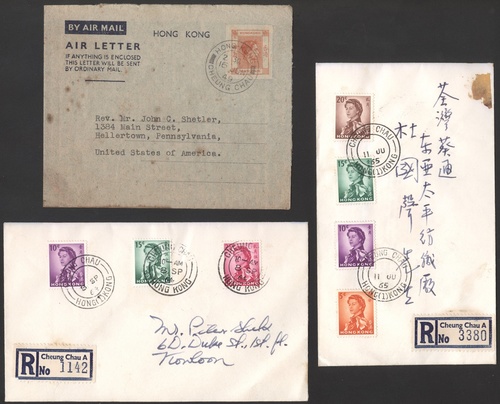 BY AIR MAIL
AIR LETTER
IF ANYTHING IS ENCLOSED
THIS LETTER WILL BE SENT
BY ORDINARY MAIL.
HONG KONG
Rev. Mr. John C. Shetler,
1384 Main Street,
Hellertown, Pennsylvania,
United States of America.
10c
HONG KONG
15c
HONG KONG
HONG KONG
Mr. Peter
6D, Duke St., 1st. fl.
Kowloon
R No
Cheung Chau A
1142
20c
HONG KONG
CHEUNG CHAU
11 JU
65
HONG KONG
15c
HONG KONG
10c
HONG KONG
CHEUNG CHAU
11 JU
65
HONG KONG
5c
HONG KONG
荃灣葵通
东亚太平紡織廠
杜國聲先生
R No
Cheung Chau A
3380